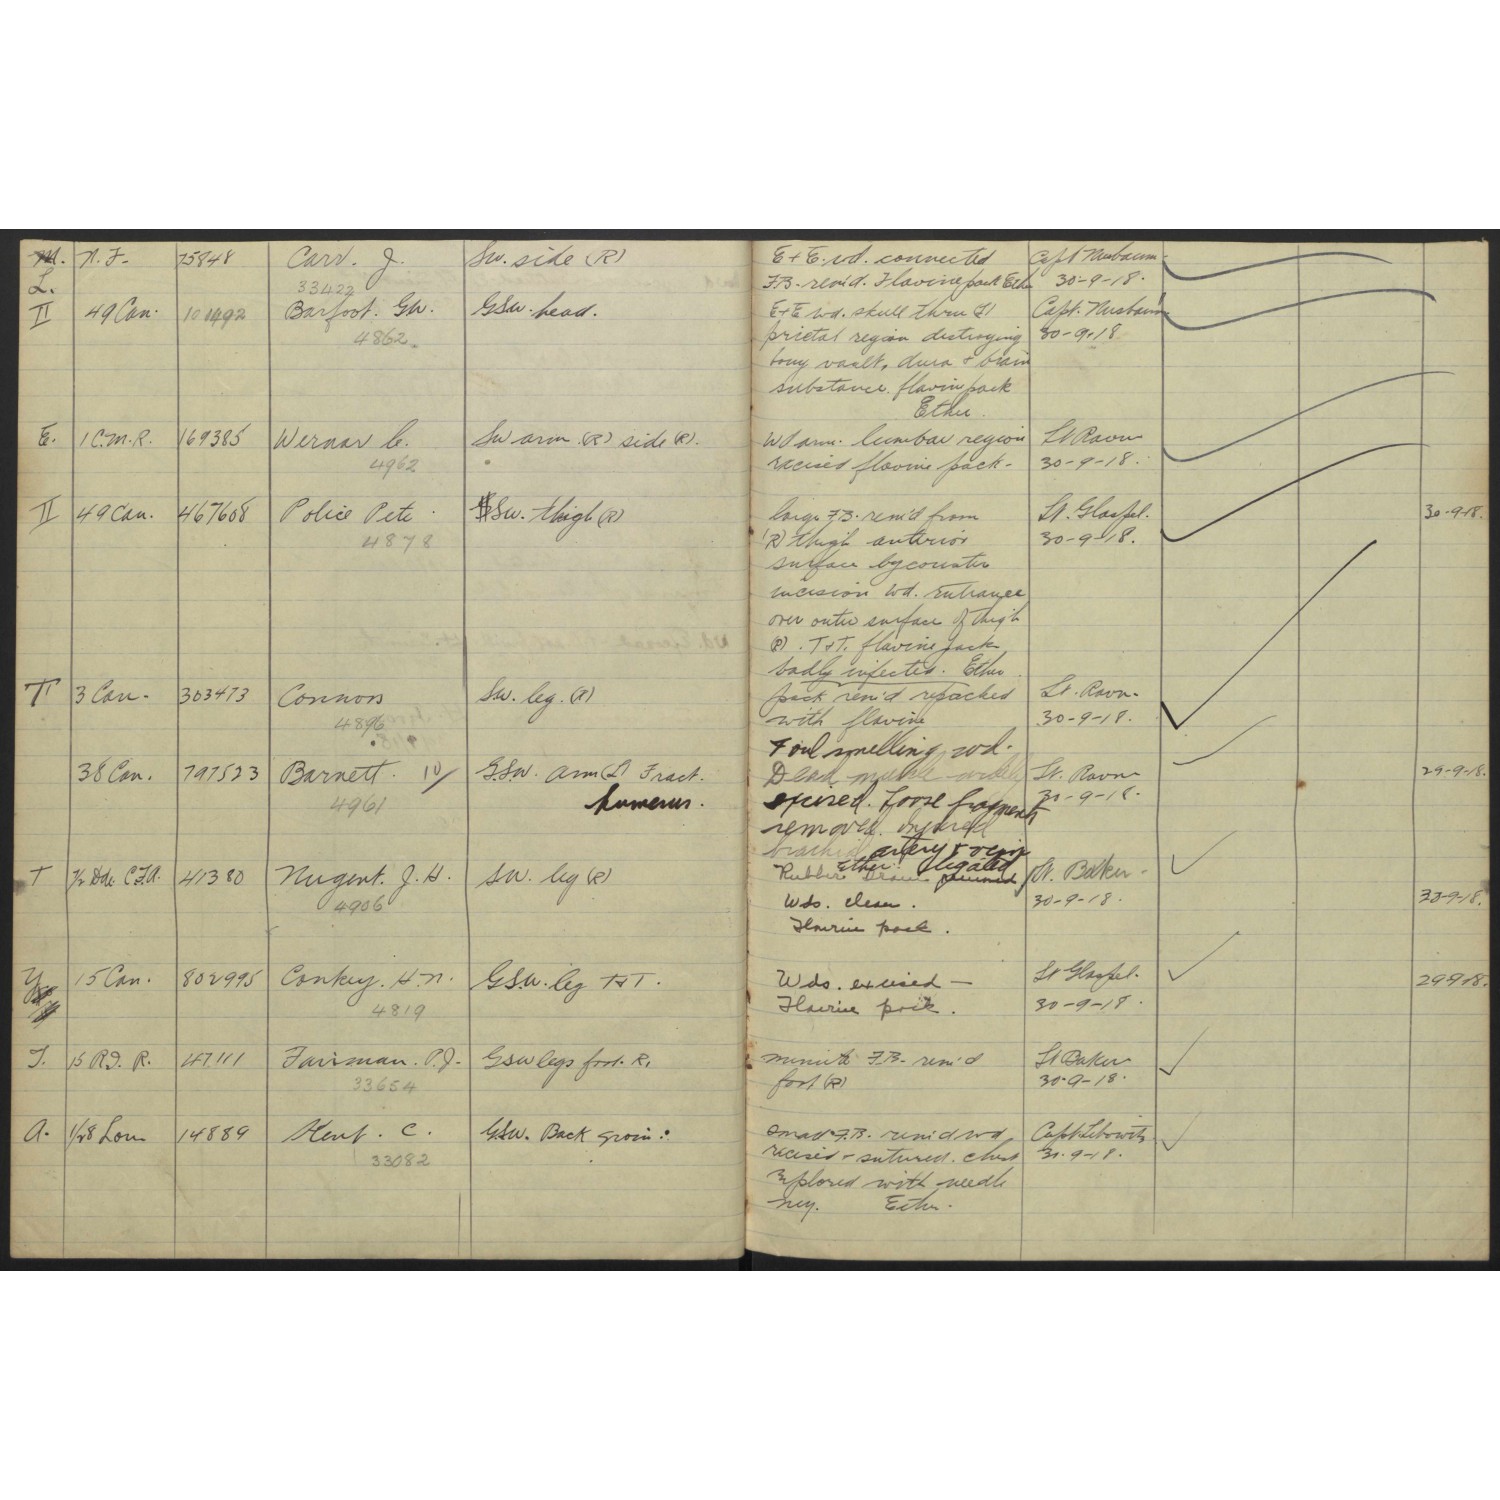 M. N.F. 75848 Carr. J. Sw. side (R) E + E. wd. connected Capt Nusbaum.
L. 33422 F.B. rem'd. Flavine pack Ether 30-9-18.
II 49 Can. Barfoot. GW. GSW. head. E+E wd. skull thru
4862 prietal region destroying 30-9-18.
bony vault, dura + brain
substance. flavine pack
Ether.
E. 1 C.M.R. 169385 Wernar C. Sw arm (R) side (R). Wd arm. lumbar region Lt Ravn
4962 excised flavine pack - 30-9-18.
II 49 Can. 467608 Police Pete. Sw. thigh (R) large F.B. rem'd from Lt. Glaspel. 30-9-18.
4878 (R) thigh anterior 30-9-18.
surface by counter
incision Wd. entrance
over outer surface of thigh
(R). T+T. flavine pack
badly infected. Ether.
T 3 Can. 303473 Connors Sw. leg. (R) pack rem'd repacked Lt. Ravn.
4896 with flavine 30-9-18.
Foul smelling wd.
38 Can. 797523 Barnett. 10/ G.S.W. arm (L) Fract. Dead muscle Lt. Ravn 29-9-18.
4961 humerus. excised. Loose fragments 30-9-18.
removed. Injured
brachial artery + vein
Ether. ligated
T 41380 Nugent. J.H. SW. leg (R) Rubber drain removed Lt. Baker.
4906 Wds. clean. 30-9-18.
Flavine pack.
Y 15 Can. 802995 Conkey. H.N. G.S.W. leg T+T. Wds. excised — Lt Glaspel. 29-9-18.
4819 Flavine pack. 30-9-18.
T. 15 R.I.R. 47111 Fairman. P.J. GSW legs foot. R. minute F.B. rem'd Lt Baker
33654 foot (R) 30-9-18.
A. 1/28 Lon 14889 Kent. C. GSW. Back groin. small F.B. rem'd wd Capt Lebowitz
33082 excised + sutured. chest 30-9-18.
Explored with needle
neg. Ether.